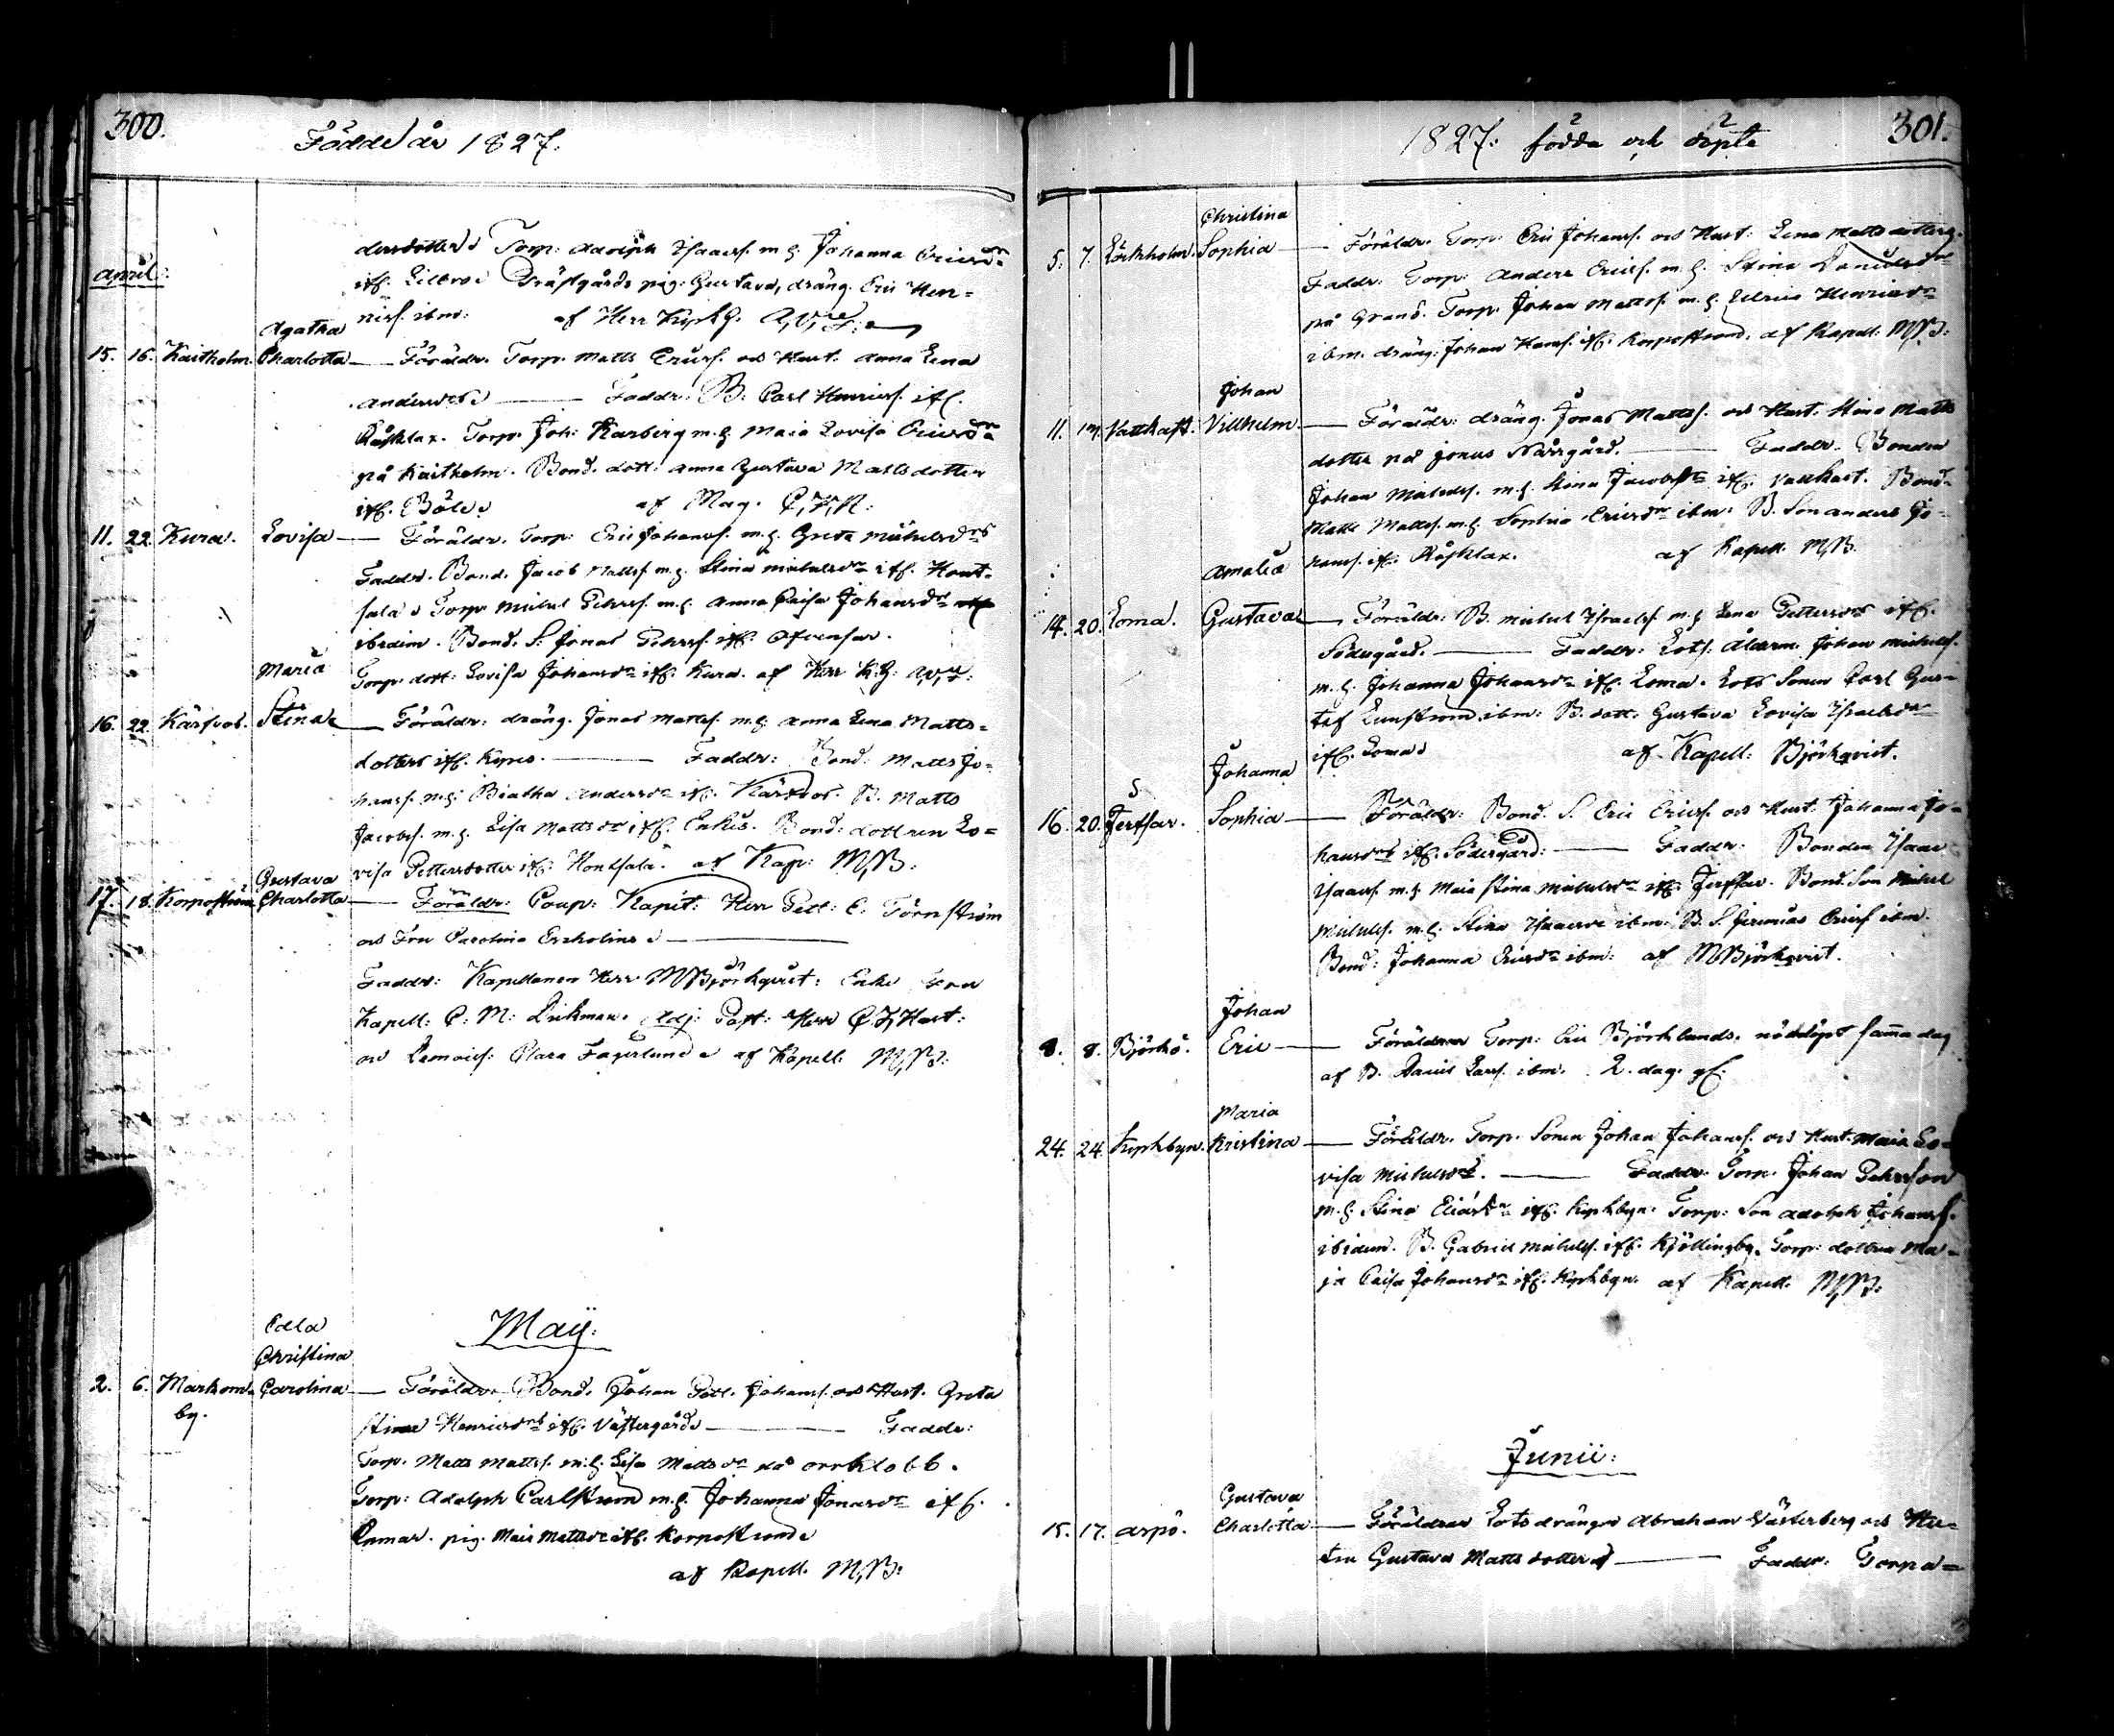 300.
Födde år 1827.
dersdotter. Torp: Adolph Isaacss. m. h. Johanna Ericsdr
april:
Prästgårds pig: Gustava, dräng. Eric Hen-
rics. ibm: af Herr
Agatha
15. 16. Kaitholm. Charlotta — Föräldr. Torp. Matts Ericss. och Hust. Anna Lena
Andersdr — Faddr: B. Carl Henricss. ifr.
Råsklax. Torp. Joh: Karberg m. h. Maia Lovisa Ericsdr
på Kaitholm. Bond. dott: Anna Gustava Mattsdotter
ifr. Böle. af Mag.
11. 22. Kura. Lovisa — Föräldr. Torp: Eric Johanss. m. h. Greta Michelsdr
Faddr. Bond. Jacob Mattss. m. h. Stina Michelsdr ifr. Hont-
sala. Torp. Michel Pehrss. m. h. Anna Caisa Johansdr
ibidem. Bond. S. Jonas Pehrss. ifr.
Maria
Torp. dott: Lovisa Johansdr ifr. Kura. af Herr K. H:
16. 22. Kärfvos. Stina — Föräldr: dräng. Jonas Mattss. m. h. Anna Lena Matts-
dotter ifr. — Faddr: Bond. Matts Jo-
hanss. m. h. Beatha Andersdr ifr. Kärfvos. B. Matts
Jacobss. m. h. Lisa Mattsdr ifr. Enkis. Bond. dottren Lo-
visa Pettersdotter ifr. Hontsala. af Kap: M,B:
Gustava
17. 18. Korpoström Charlotta — Föräldr: Coup: Kapit: Herr Pett: E. Törnström
och Fru Carolina
Faddr: Kapellanen Herr M Björkqvist: Enke Fru
Kapell: C: M: Dickman. Adj: Past: Herr
och Demois: Clara Fagerlund. af Kapell. M,B:
May:
Edla
Christina
2. 6. Markom- Carolina — Föräldr. Bond. Johan Pett. Johanss. och Hust. Greta
by.
Stina Henricsdr ifr. Västergård. — Faddr:
Torp. Matts Mattss. m. h. Lisa Mattsdr på orrklobb.
Torp: Adolph Carlström m. h. Johanna Jonasdr ifr.
pig. Maia Mattsdr ifr. Korpoström.
af Kapell. M,B:
1827: födda och döpte
301.
Christina
5. 7. Lörkholm. Sophia — Föräldr. Torp: Eric Johanss. och Hust: Lena Mattsdotter.
Faddr. Torp: Anders Ericss. m. h. Stina
på Grand. Torp. Johan Mattss. m. h. Henricsdr
ibm. dräng: Johan Hanss. ifr. Korpoström. af Kapell. M,B:
Johan
11. 17. Vattkast. Villhelm. — Föräldr: dräng. Jonas Mattss. och Hust. Stina Matts
dotter på Norrgård. — Faddr. Bonden
Johan Michelss. m. h. Stina Jacobsdr ifr. Vattkast. Bond.
Matts Mattss. m. h. Sophia Ericsdr ibm. B. Son Anders Jo-
hanss. ifr. Råsklax. af Kapell. M,B.
Amalia
14. 20. Loma. Gustava — Föräldr: B. Michel Israelss. m. h. Lena Pettersdr ifr.
Södergård. — Faddr: Lots. Ålderm. Johan Michelss.
m. h. Johanna Johansdr ifr. Loma. Lots Sonen Carl Gus-
taf Lunström ibm: B. dott: Gustava Lovisa Israelsdr
ifr. Loma. af Kapell: Björkqvist.
Johanna
16. 20. Jerfsar. Sophia — Föräldr: Bond. S. Eric Ericss. och Hust. Johanna Jo-
hansdr ifr. Södergård: — Faddr: Bonden Isaac
Isaacss. m. h. Maia Stina Michelsdr ifr. Jerfsar. Bond. Son Michel
Michelss. m. h. Stina Isaacsdr ibm: B. S. Jeremias Ericss. ibm.
Bond: Johanna Ericsdr ibm: af M Björkqvist.
Johan
8. 8. Björkö. Eric — Föräldrar Torp: Eric Björklunds. nöddöpt samma dag
af B. Daniel Larss. ibm. 2. dag. gl.
Maria
24. 24. Kyrkbyn. Kristina — Föräldr. Torp. Sonen Johan Johanss. och Hust. Maia Lo-
visa Michelsdr. — Faddr. Torp. Johan Pehrsson
m. h. Stina ifr. Kyrkbyn. Torp: Son Adolph Johanss.
ibidem. B. Gabriel Michelss. ifr. Kjöllingby. Torp: dottren Ma-
ja Caisa Johansdr ifr. Kyrkbyn. af Kapell. M,B:
Junii:
Gustava
15. 17. Arpö. Charlotta — Föräldrar Lotsdrängen Abraham Västerberg och Hu-
stru Gustava Mattsdotter — Faddr: Torpa-